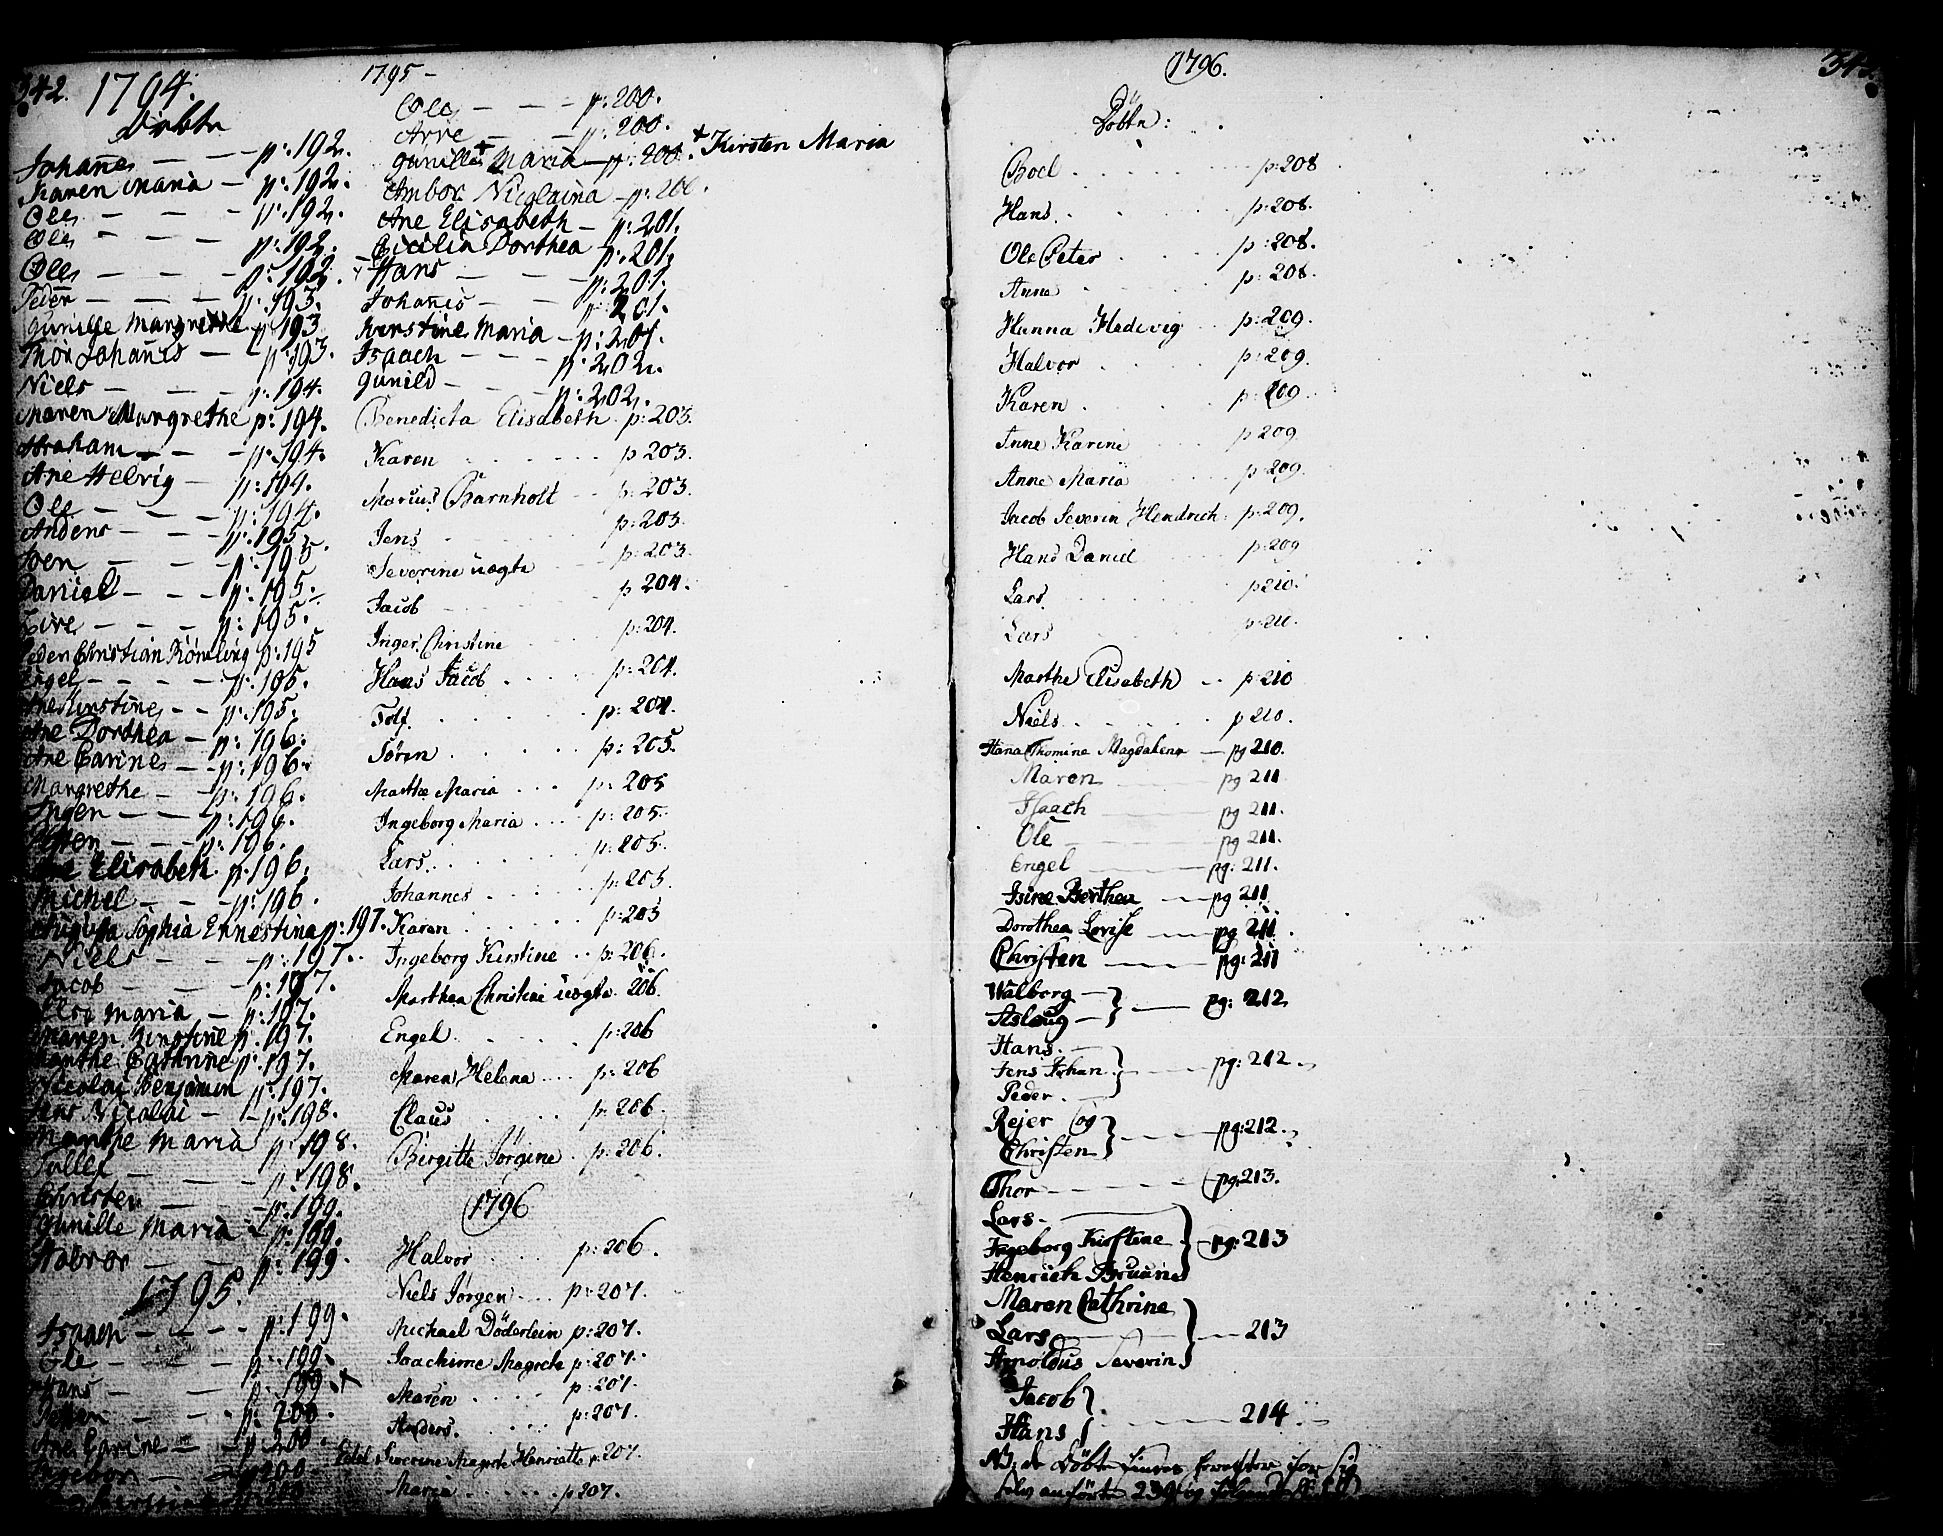 342. 1794.
Döbte
Johanes — — — p: 192.
Karen Maria — p: 192.
Ole — — — p: 192.
Ole — — p: 192.
Ole — — — p: 192.
Peder — — — p: 193.
Gunille Margrethe p 193
Thor Johanes — p: 193.
Niels — — — p: 194.
Maren Margrethe p: 194.
Abraham — — p: 194.
Ane Helvig — p: 194.
Ole — — — p: 194.
Anders — — — p: 195.
Soen — — — p: 195.
Daniel — — — p: 195.
Live — — — p: 195.
Peder Christian Römeling p: 195
Engel — — — p: 195.
Ane Kirstine — — p: 195.
Ane Dorthea — p: 196.
Ane Carine — — p: 196.
Margrethe — — p: 196.
Inger — — — p: 196.
Steen — — — p: 196.
Ane Elisabeth p. 196.
Michel — — p: 196.
Augusta Sophia Ernestina p: 197.
Niels — — — p: 197.
Jacob — — — p: 197.
Elsa Maria — p: 197.
Maren Kirstine p: 197.
Marthe Cathrine p: 197.
Nicolai Benjamin p: 197.
Jens Nicolai — p: 198.
Marthe Maria p: 198.
— — p: 198.
Christen — — p: 199.
Gunille Maria — p: 199.
Halvor — — p: 199.
1795.
Isaach — — — p: 199.
Ole — — — p: 199.
Hans — — p: 199. +
— — — p: 200.
Ane Carine — — p 200.
Ingebor — — p 200

1795 —
Ole — — — p: 200.
Arve — — p: 200.
Gunille + Maria — p: 200. + Kirsten Maria
Ambor Nicolaina — p: 200.
Ane Elisabeth — p: 201.
Cicilia Dorthea — p: 201.
Hans — — — p: 201.
Johanis — — — p: 201.
Kirstine Maria — p: 201.
Isaach — — — p: 202.
Gunild — — — p: 202.
Benedicta Elisabeth p: 203.
Karen . . . . . . p 203.
Marcus Barnholt . . p: 203
Jens . . . . p: 203.
Severine Uegte . . p: 203.
Jacob . . . . p 204.
Inger Christine . . . p: 204.
Hans Jacob . . . . p: 204.
Tolf . . . . . . p: 204.
Sören . . . . . . p: 205.
Marthe Maria . . . p: 205
Ingeborg Maria . . . p: 205.
Lars . . . . . . p: 205.
Johannes . . . . . p: 205.
Karen . . . . . . p: 205
Ingeborg Kirstine . . p: 206.
Marthea Christine Uegte 206.
Engel . . . . . p: 206
Maren Helena . . . p: 206
Claus . . . . . p: 206.
Birgitte Jörgine . p: 206.
1796
Halvor . . . . p: 206.
Niels Jörgen . . . p: 207.
Michael Döderlein p: 207.
Joachime Magrete p: 207.
Maren . . . . p: 207.
Anders . . . . p: 207.
Edel Severine Magrete Henriette p. 207.
Maria . . . . . p 207.

1796.
Döbte:
Boel . . . . . . p: 208
Hans . . . . . p: 208.
Ole Peter . . . . p: 208.
Anne . . . . . p: 208.
Hanna Hedevig . . p: 209.
Halvor . . . . . p: 209.
Karen . . . . . p: 209.
Anne Karine . . . p 209
Anne Maria . . . p 209.
Jacob Severin Hendrich: p: 209.
Hans Daniel . . . p: 209
Lars . . . . . p 210.
Lars . . . . . p: 210.
Marthe Elisabeth . . p: 210
Niels . . . . . p 210.
Hana Thomine Magdalena — pg 210.
Maren — pg 211
Isaach — pg 211.
Ole — pg 211.
Engel — pg: 211.
Isine Berthea — pg 211
Dorothea Lovise — pg 211.
Christen — pg: 211
Walborg —
Aslaug — } — pg: 212
Hans —
Jens Johan } — pg: 212
Peder —
Rejer og
Christen } — pg: 212.
Thor — — — pg. 213.
Lars —
Ingeborg Kirstine } — pg: 213
Henrich Bruun
Maren Cathrine
Lars — } — 213
Arnoldus Severin
Jacob
Hans } — 214